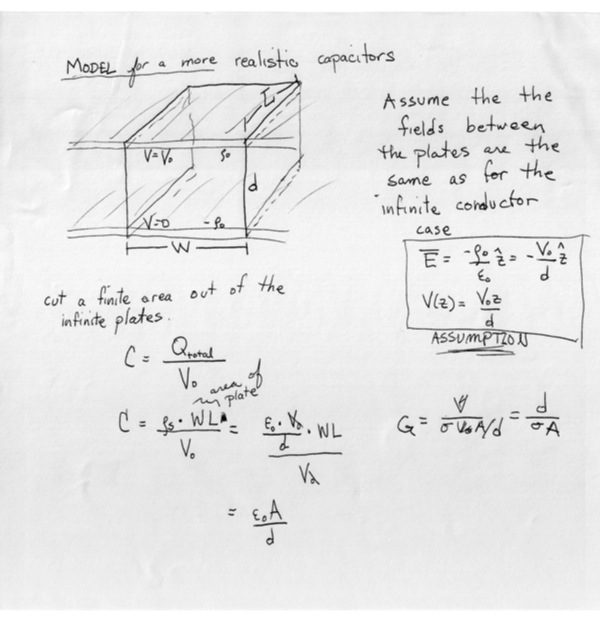 MODEL for a more realistic capacitors
L
V=V₀ ρ₀
d
V=0 -ρ₀
W
Assume the the
fields between
the plates are the
same as for the
infinite conductor
case
E̅ = -ρ₀/ε₀ ẑ = -V₀/d ẑ
V(z) = V₀z/d
ASSUMPTION
cut a finite area out of the
infinite plates.
C = Qtotal/V₀
area of
plate
C = ρs · WL/V₀ = ε₀ · V₀/d · WL/V₀
= ε₀A/d
G = V/σV₀A/d = d/σA